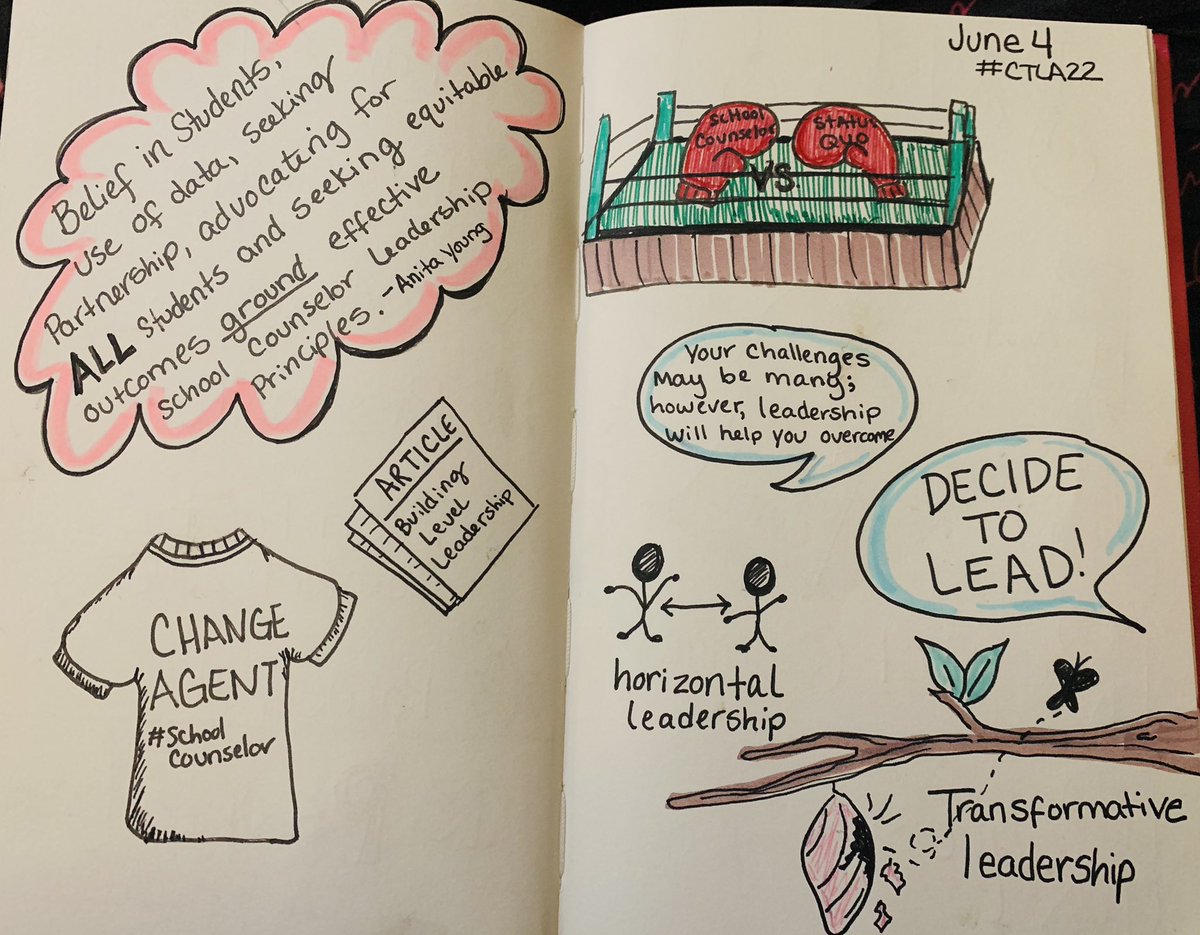 Belief in Students,
use of data, seeking
Partnership, advocating for
ALL Students and seeking equitable
outcomes ground effective
school counselor leadership
Principles. - Anita Young
ARTICLE
Building
Level
Leadership
CHANGE
AGENT
#School
Counselor
June 4
#CTLA22
School
Counselor
VS.
STATUS
QUO
Your challenges
may be many;
however, leadership
will help you overcome
DECIDE
TO
LEAD!
horizontal
leadership
Transformative
leadership